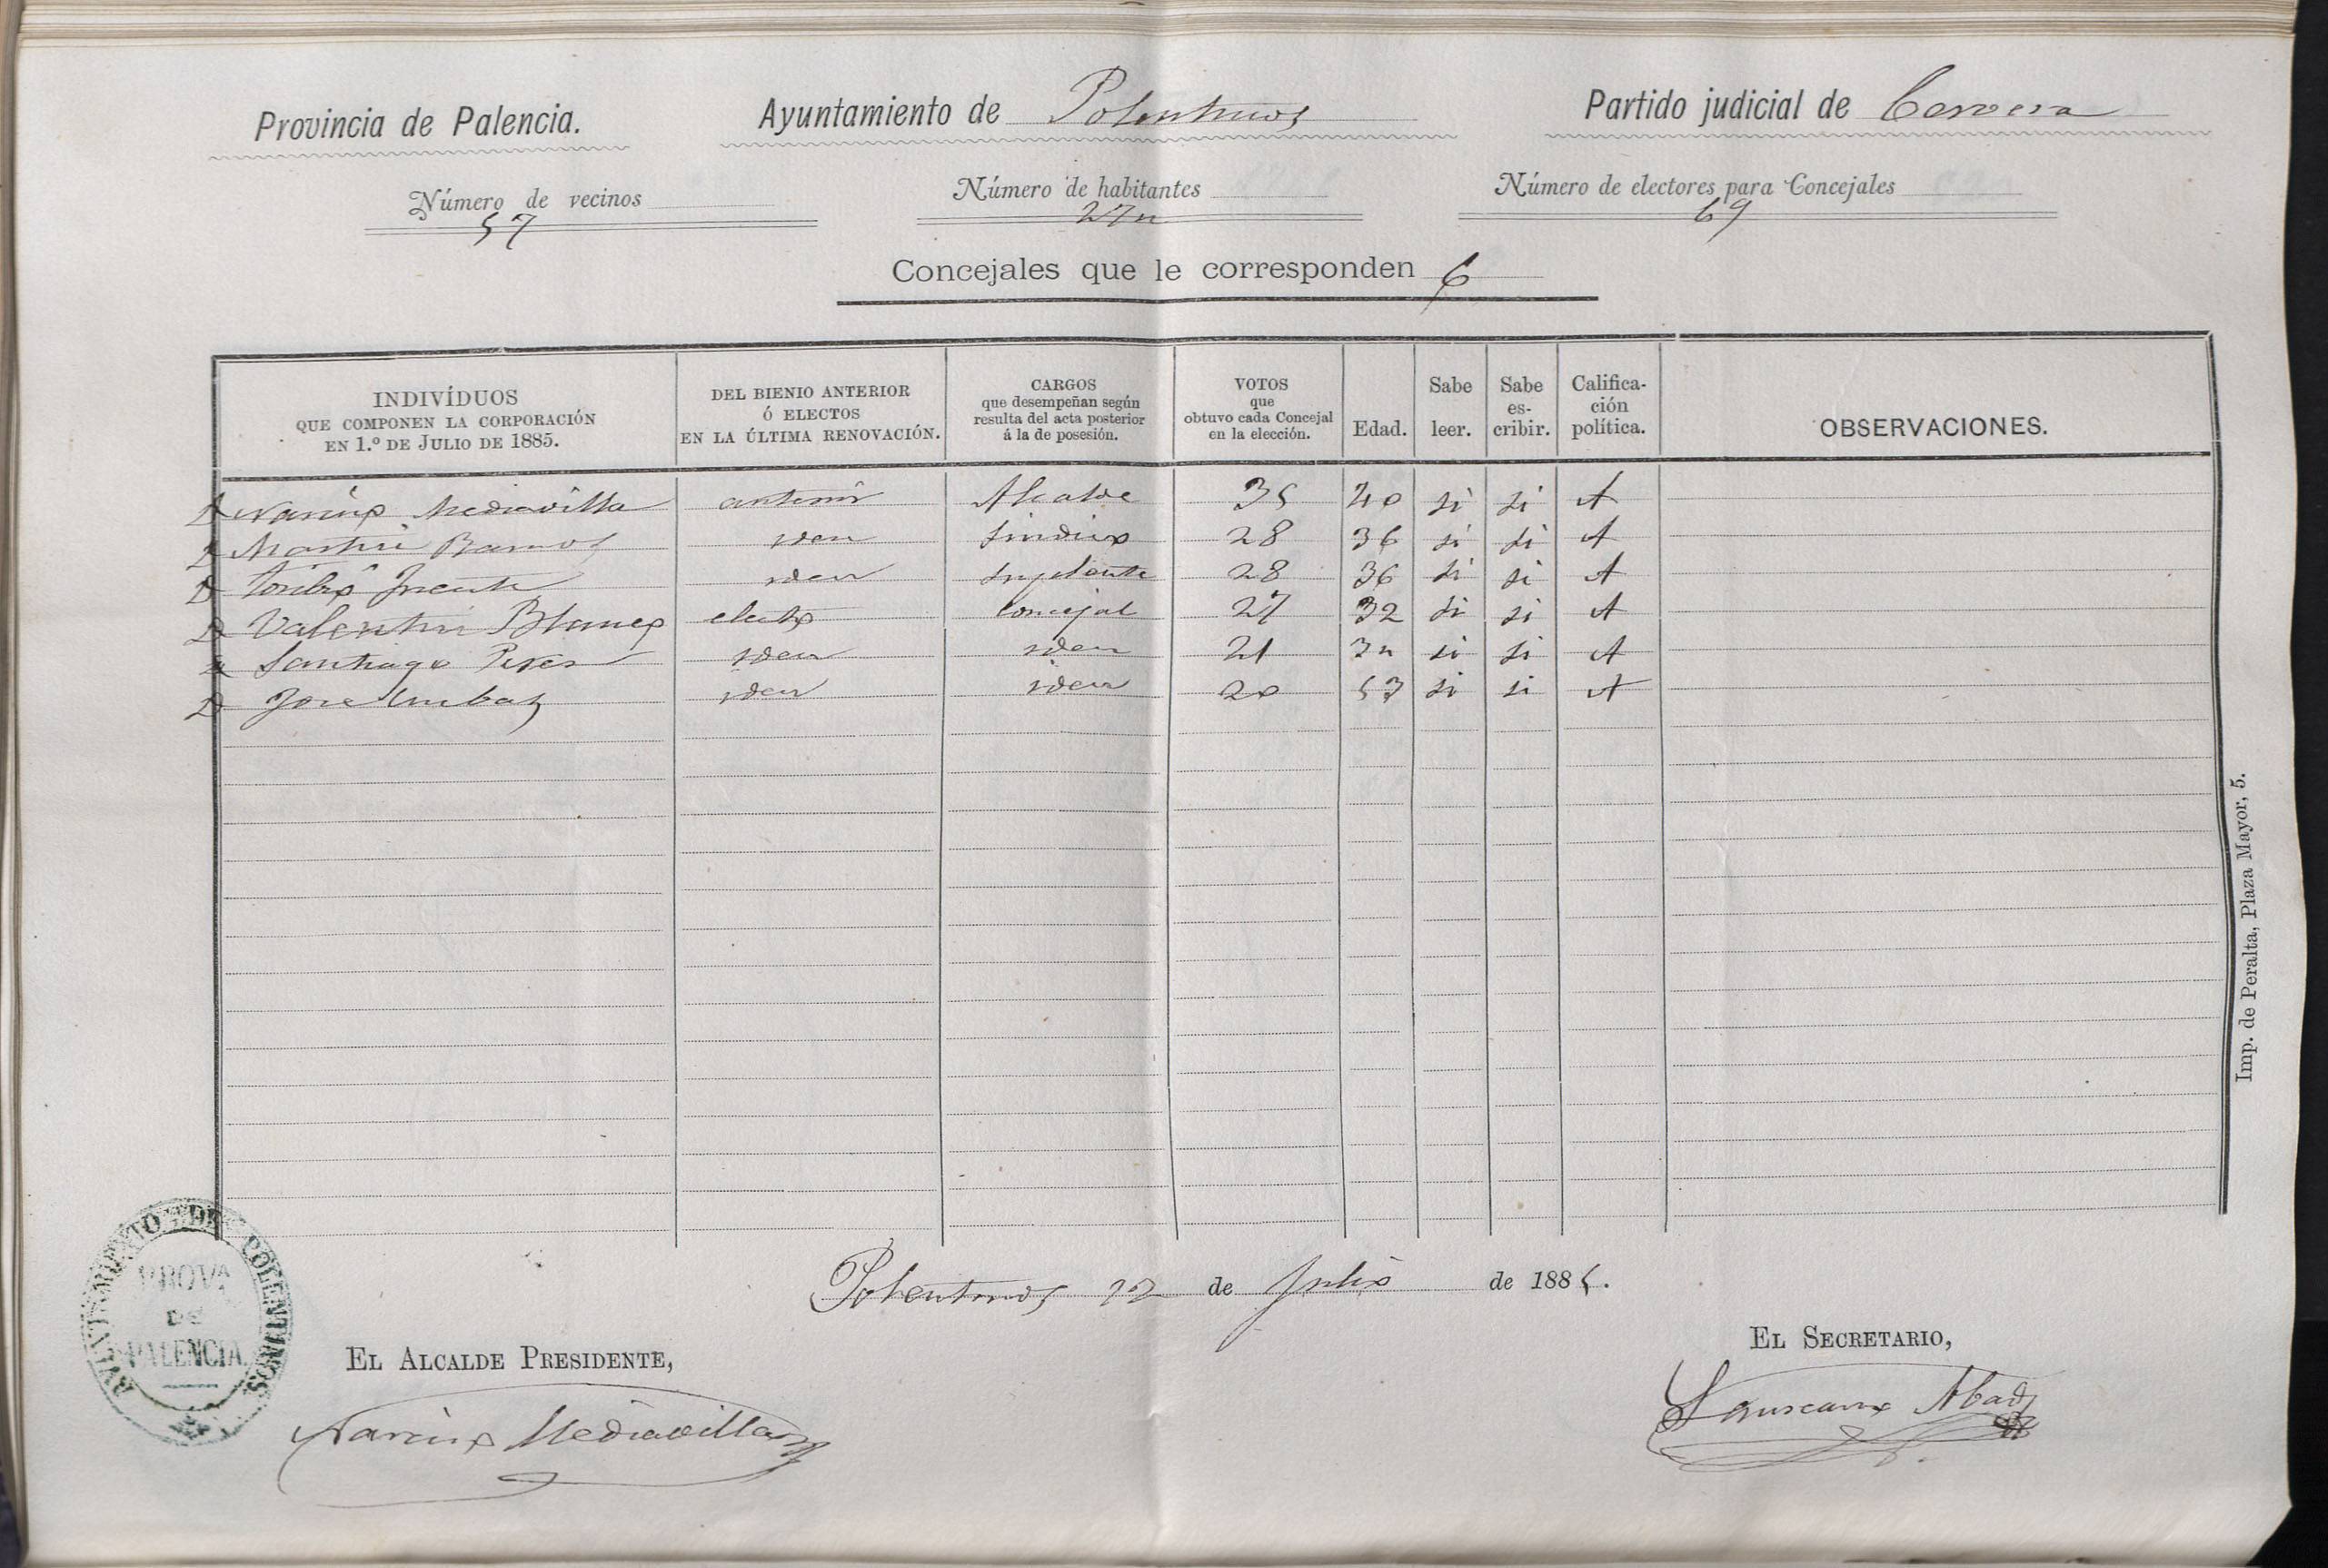 Provincia de Palencia. Ayuntamiento de Polentinos Partido judicial de Cervera
Número de vecinos 57 Número de habitantes Número de electores para Concejales 69
Concejales que le corresponden 6
INDIVÍDUOS QUE COMPONEN LA CORPORACIÓN EN 1.º DE JULIO DE 1885. DEL BIENIO ANTERIOR Ó ELECTOS EN LA ÚLTIMA RENOVACIÓN. CARGOS que desempeñan según resulta del acta posterior á la de posesión. VOTOS que obtuvo cada Concejal en la elección. Edad. Sabe leer. Sabe es-cribir. Califica-ción política. OBSERVACIONES.
D Narciso Mediavilla anterior Alcalde 35 40 si si A
D Martin Ramos iden Sindico 28 36 si si A
D Toribio iden Suplente 28 36 si si A
D Valentin Blanco electo Concejal 27 32 si si A
Santiago Peres iden iden 21 si si A
D Jose iden iden 20 53 si si A
Imp. de Peralta, Plaza Mayor, 5.
Polentinos 22 de Julio de 1885.
AYUNTAMIENTO DE POLENTINOS
PROVA
DE
PALENCIA
EL ALCALDE PRESIDENTE,
Narciso Mediavilla
EL SECRETARIO,
Abad